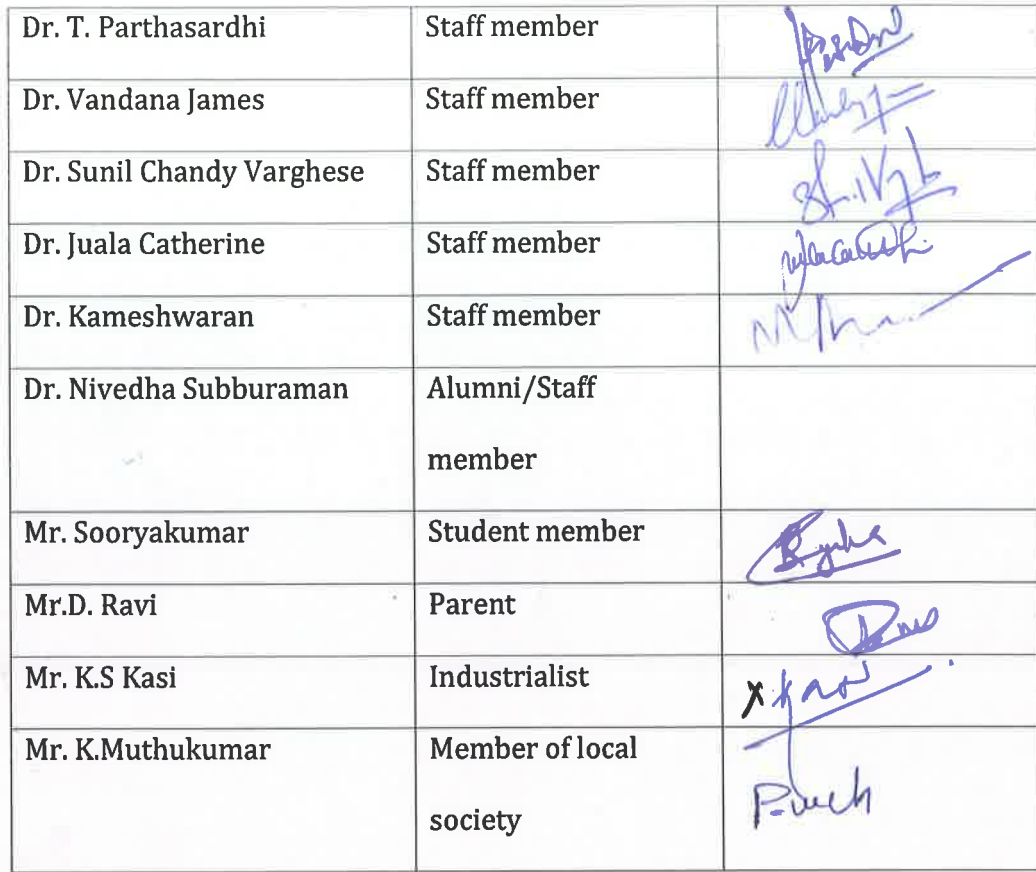 Dr. T. Parthasardhi Staff member
Dr. Vandana James Staff member
Dr. Sunil Chandy Varghese Staff member
Dr. Juala Catherine Staff member
Dr. Kameshwaran Staff member
Dr. Nivedha Subburaman Alumni/Staff
member
Mr. Sooryakumar Student member
Mr.D. Ravi Parent
Mr. K.S Kasi Industrialist
Mr. K.Muthukumar Member of local
society